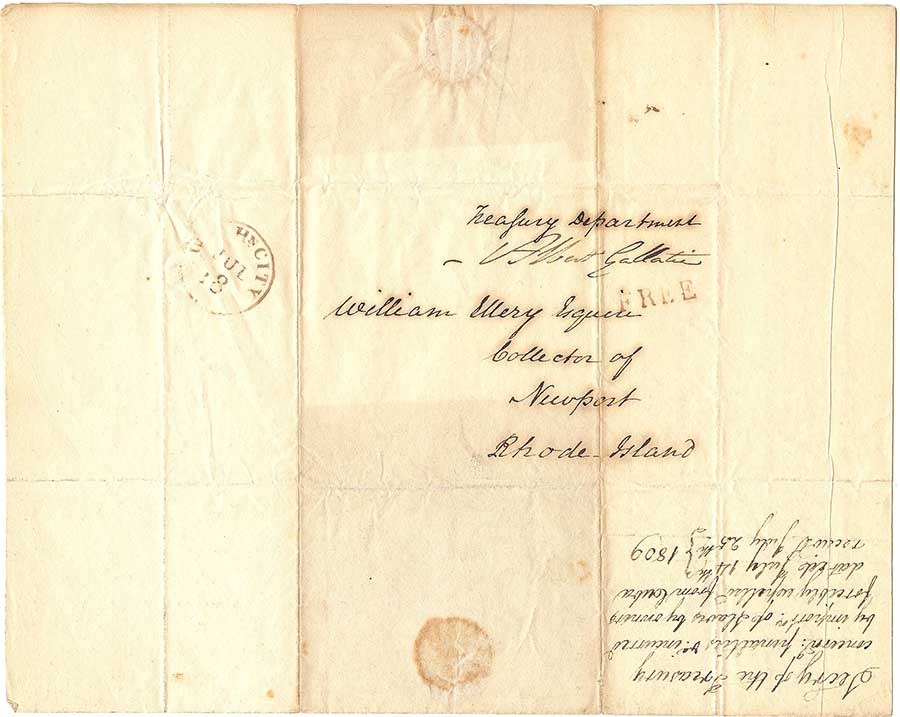 Treasury Department
Albert Gallatin
FREE
William Ellery Esquire
Collector of
Newport
Rhode-Island
HN CITY
JUL
18
Secry. of the Treasury
concern: penalties &c incurred
by import.n of slaves by owners
forcibly expelled from Cuba
dated July 14th
receiv'd July 25th } 1809